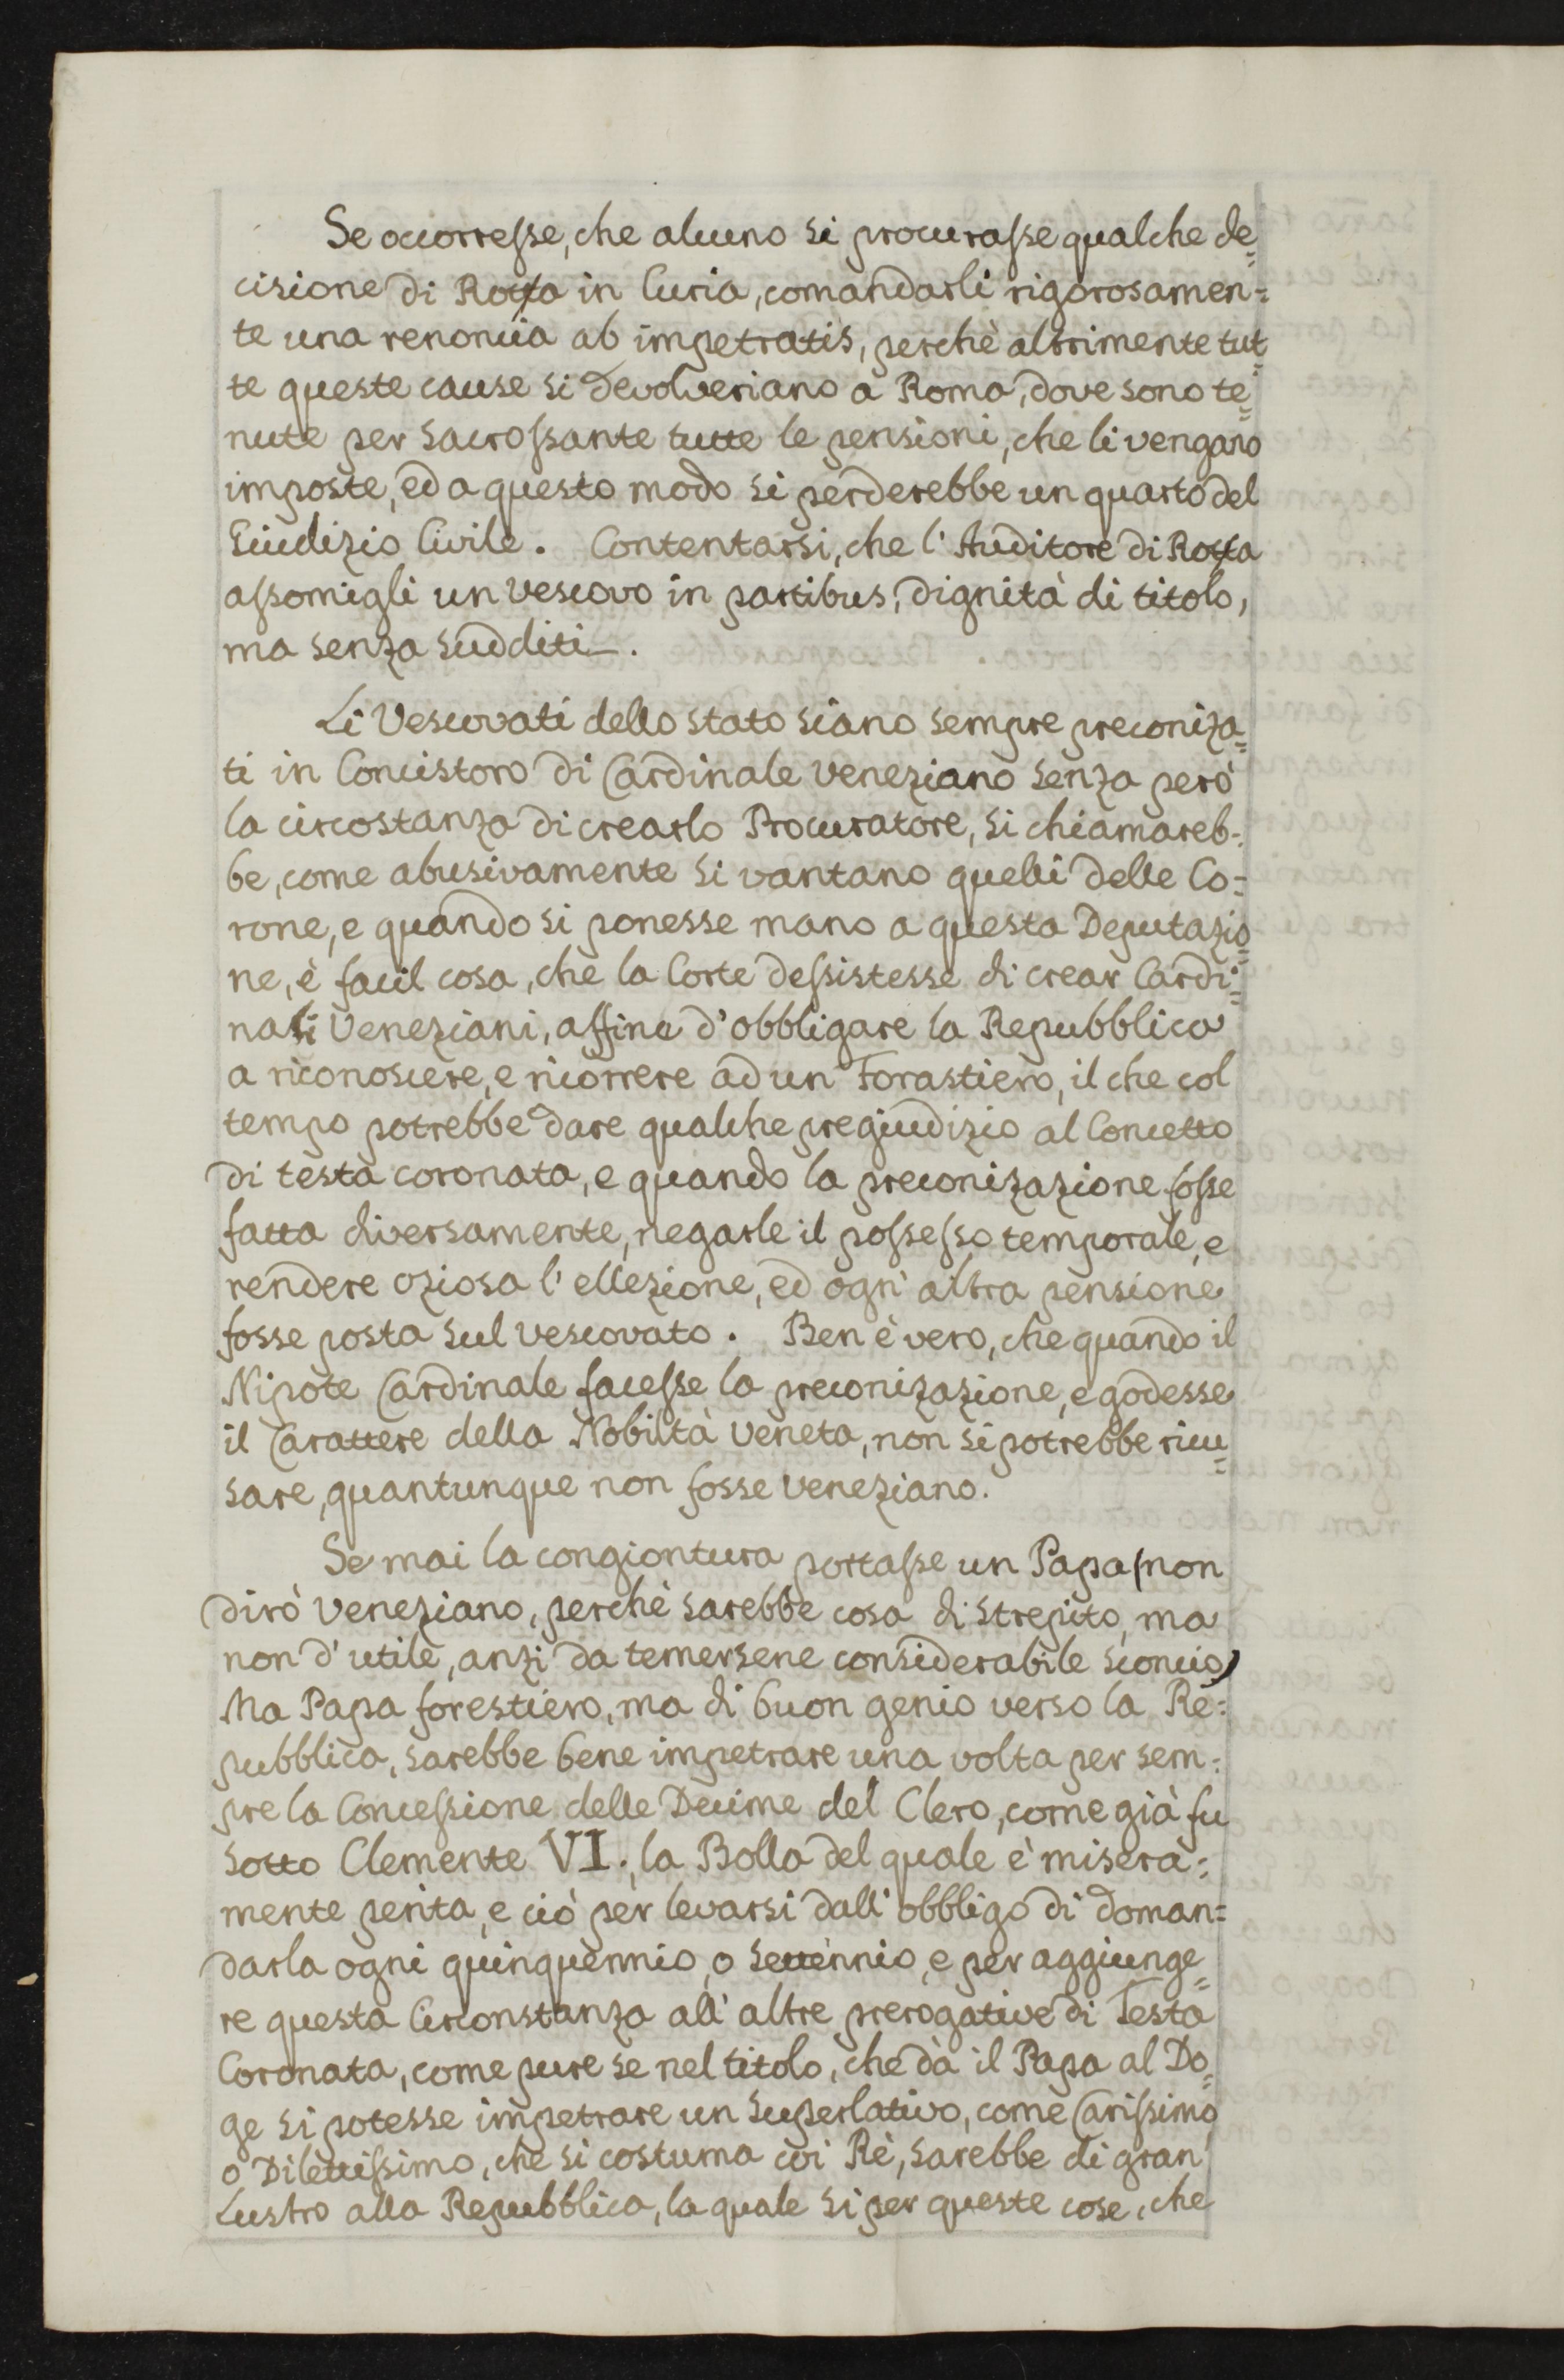 Se occorresse, che alcuno si procurasse qualche de=
cisione di Rotta in Curia, comandarli rigorosamen=
te una renoncia ab impetratis, perchè altrimente tut=
te queste cause si devolveriano a Roma, dove sono te=
nute per sacrossante tutte le pensioni, che li vengano
imposte, ed a questo modo si perderebbe un quarto del
Giudizio Civile. Contentarsi, che l'Auditore di Rotta
assomigli un Vescovo in partibus, dignità di titolo,
ma senza sudditi.
Li Vescovati dello stato siano sempre preconiza=
ti in Concistoro di Cardinale Veneziano senza però
la circostanza di crearlo Procuratore, si chiamareb=
be, come abusivamente si vantano quelli delle Co=
rone, e quando si ponesse mano a questa Deputazio=
ne, è facil cosa, che la Corte dessistesse di crear Cardi=
nali Veneziani, affine d'obbligare la Repubblica
a riconoscere, e ricorrere ad un Forastiero, il che col
tempo potrebbe dare qualche pregiudizio al Concetto
di testa coronata, e quando la preconizazione fosse
fatta diversamente, negarle il possesso temporale, e
rendere oziosa l'ellezione, ed ogn'altra pensione
fosse posta sul Vescovato. Ben è vero, che quando il
Nipote Cardinale facesse la preconizazione, e godesse
il Carattere della Nobiltà Veneta, non si potrebbe ricu=
sare, quantunque non fosse Veneziano.
Se mai la congiontura portasse un Papa (non
dirò Veneziano, perchè sarebbe cosa di strepito, ma
non d'utile, anzi da temersene considerabile sconcio)
Ma Papa forestiero, ma di buon genio verso la Re=
pubblica, sarebbe bene impetrare una volta per sem=
pre la Concessione delle Decime del Clero, come già fu
sotto Clemente VI., la Bolla del quale è misera=
mente perita, e ciò per levarsi dall'obbligo di doman=
darla ogni quinquennio, o settennio, e per aggiunge=
re questa Circonstanza all'altre prerogative di Testa
Coronata, come pure se nel titolo, che dà il Papa al Do=
ge si potesse impetrare un Superlativo, come Carissimo
o Dilettissimo, che si costuma coi Rè, sarebbe di gran
Lustro alla Repubblica, la quale si per queste cose, che